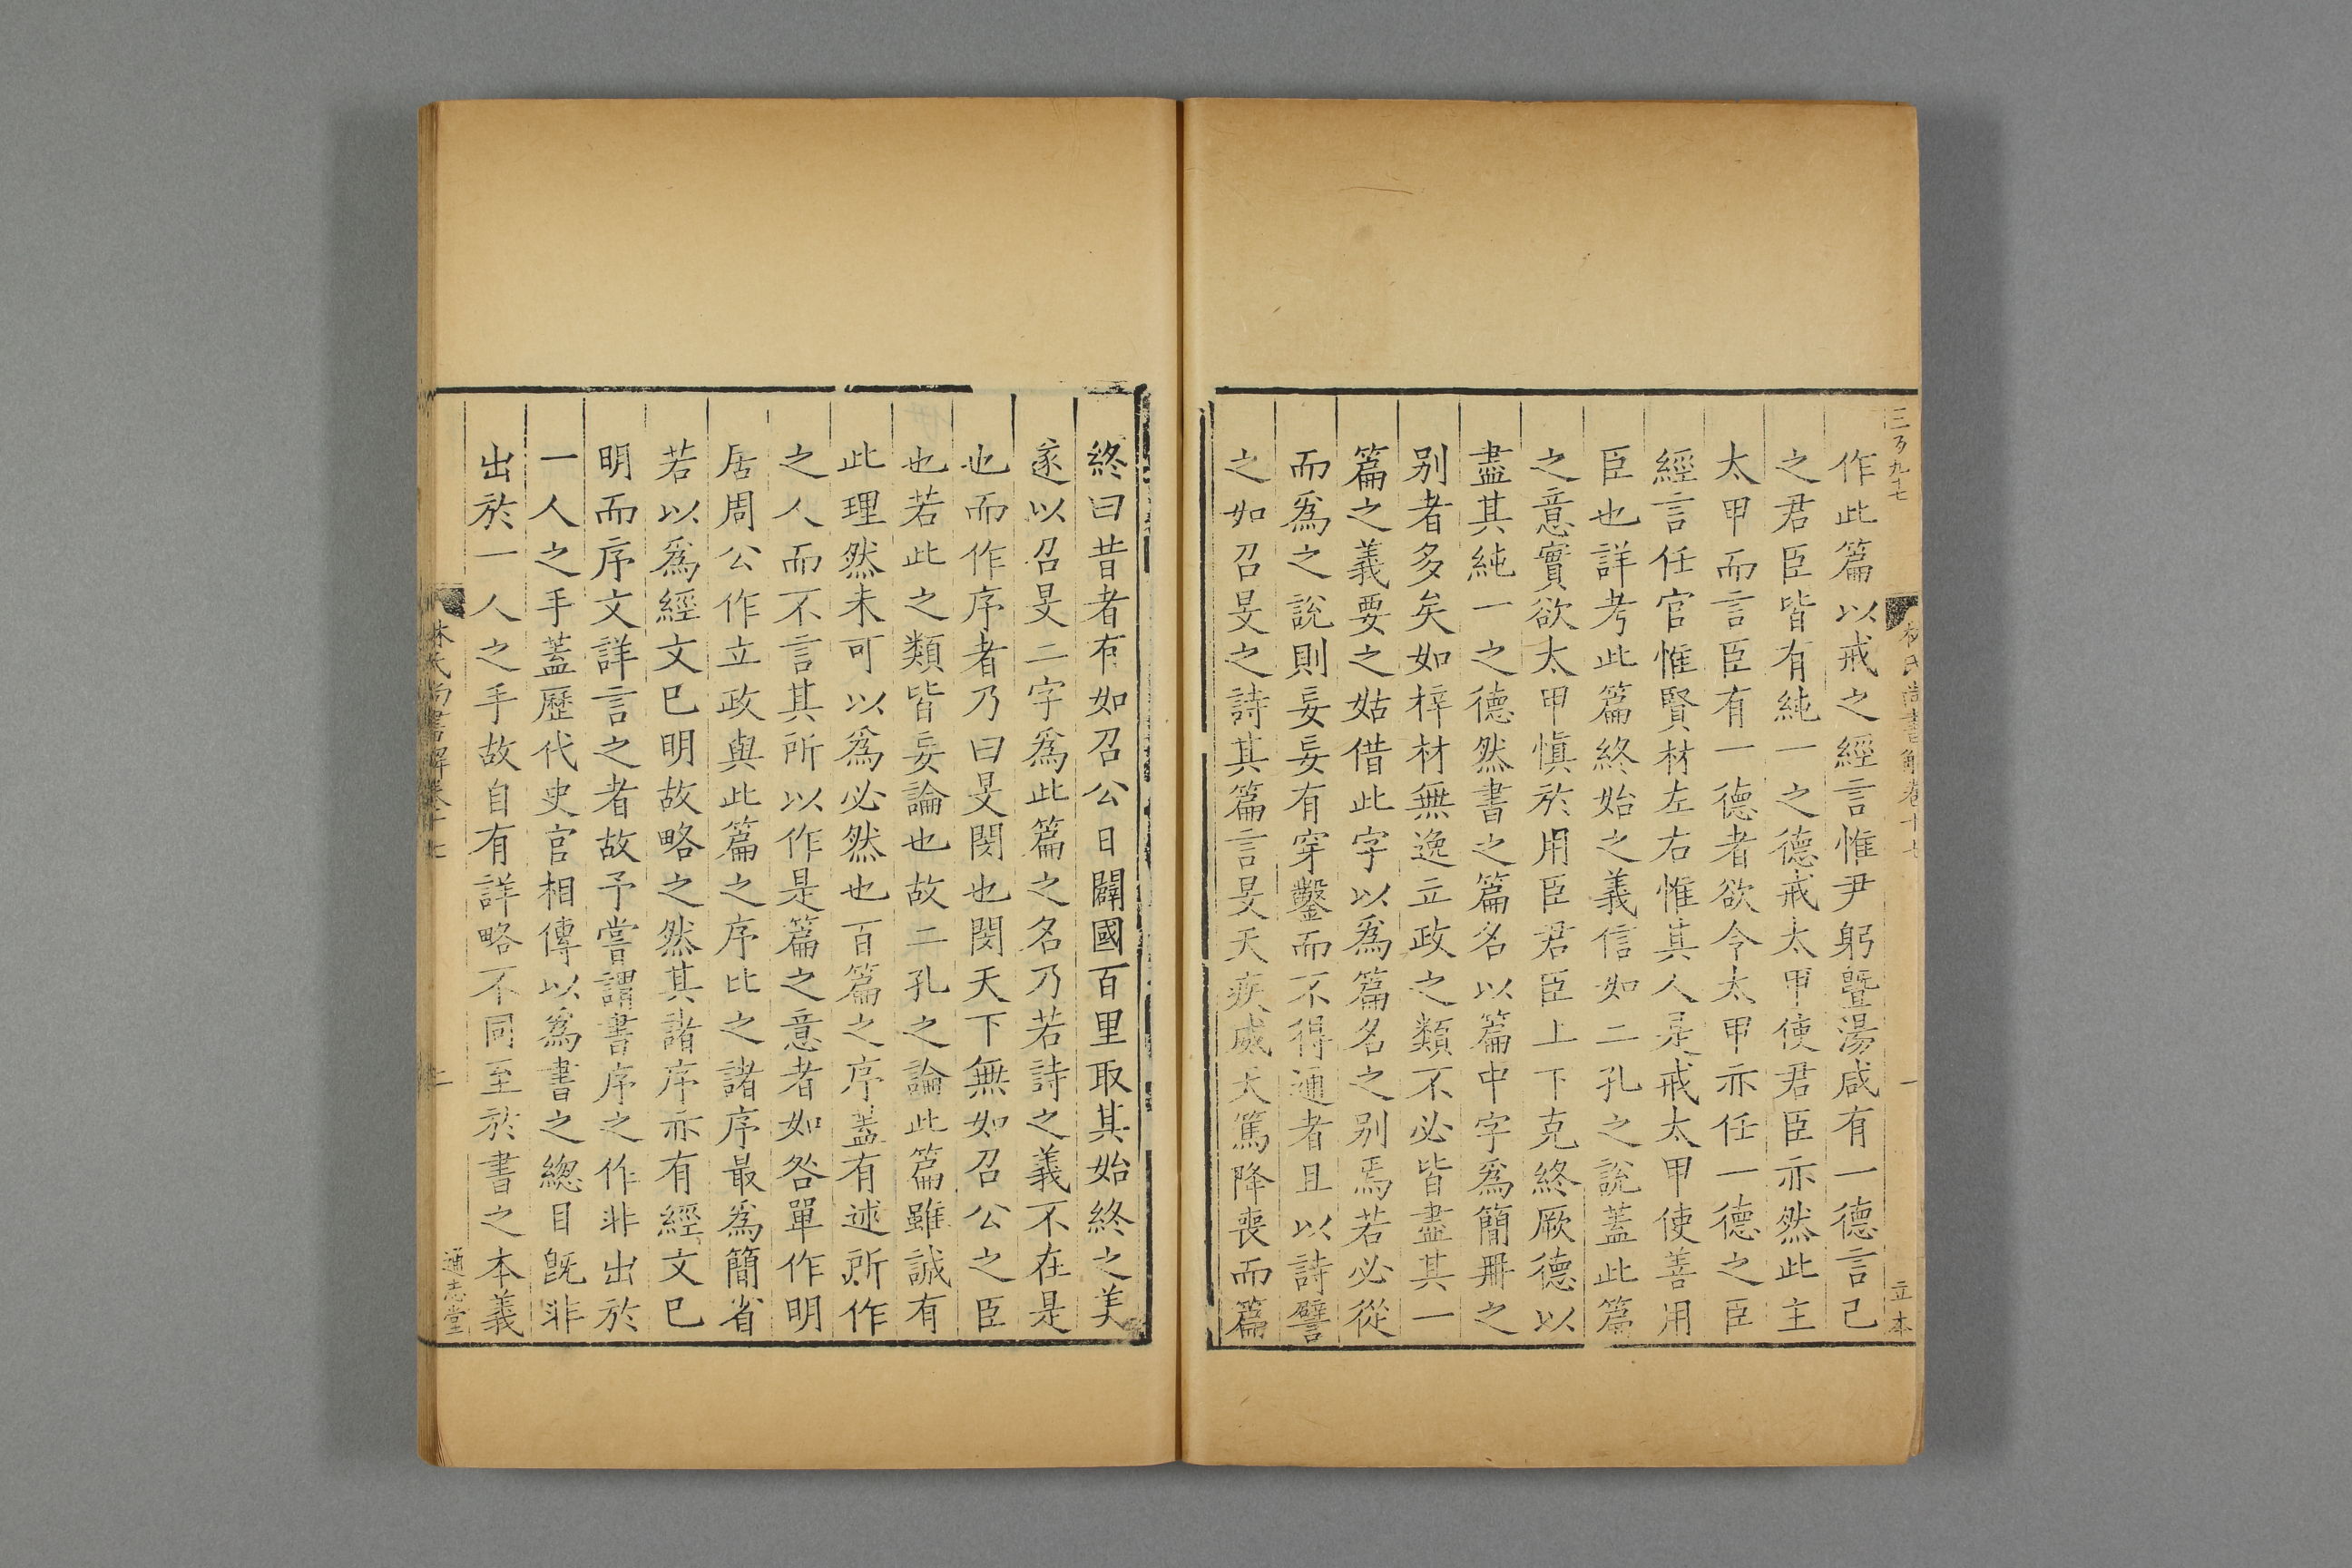 三百九十七
林氏尚書解卷十七
一
立本
作此篇以戒之經言惟尹躬曁湯咸有一德言己
之君臣皆有純一之德戒太甲使君臣亦然此主
太甲而言臣有一德者欲令太甲亦任一德之臣
經言任官惟賢材左右惟其人是戒太甲使善用
臣也詳考此篇終始之義信如二孔之說蓋此篇
之意實欲太甲愼於用臣君臣上下克終厥德以
盡其純一之德然書之篇名以篇中字爲簡冊之
别者多矣如梓材無逸立政之類不必皆盡其一
篇之義要之姑借此字以爲篇名之别焉若必從
而爲之說則妄妄有穿鑿而不得通者且以詩譬
之如召旻之詩其篇言旻天疾威天篤降喪而篇
終曰昔者有如召公日闢國百里取其始終之美
遂以召旻二字爲此篇之名乃若詩之義不在是
也而作序者乃曰旻閔也閔天下無如召公之臣
也若此之類皆妄論也故二孔之論此篇雖誠有
此理然未可以爲必然也百篇之序蓋有述所作
之人而不言其所以作是篇之意者如咎單作明
居周公作立政與此篇之序比之諸序最爲簡省
若以爲經文已明故略之然其諸序亦有經文已
明而序文詳言之者故予嘗謂書序之作非出於
一人之手蓋歷代史官相傳以爲書之總目旣非
出於一人之手故自有詳略不同至於書之本義
林氏尚書解卷十七
二
通志堂